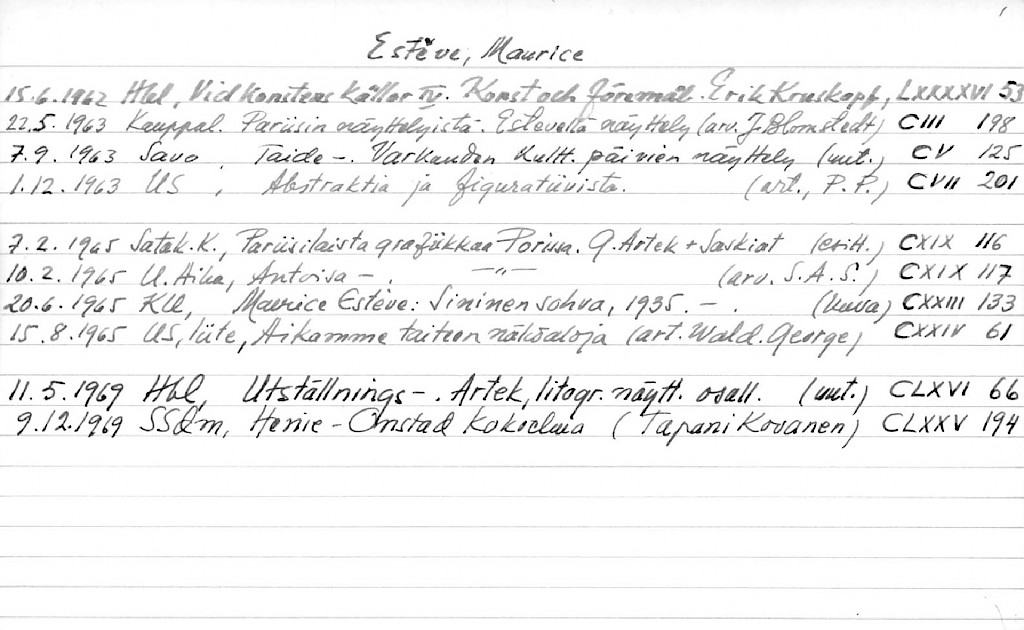 Estève, Maurice
15.6.1962 Hbl, Vid konstens källor IV. Konst och föremål. Erik Kruskopf, LXXXXVI 53
22.5.1963 Kauppal. Pariisin näyttelyistä. Estevellä näyttely (arv. J. Blomstedt) CIII 198
7.9.1963 Savo, Taide-. Varkauden kultt. päivien näyttely (uut.) CV 125
1.12.1963 US, Abstraktia ja figuratiivista. (art., P.P.) CVII 201
7.2.1965 Satak.K., Pariisilaista grafiikkaa Porissa. G. Artek + Saskiat (esitt.) CXIX 116
10.2.1965 U.Aika, Antoisa -. -"- (arv. S.A.S.) CXIX 117
20.6.1965 KU, Maurice Estève: Sininen sohva, 1935. - . (kuva) CXXIII 133
15.8.1965 US, liite, Aikamme taiteen näköaloja (art. Wald. George) CXXIV 61
11.5.1969 Hbl, Utställnings-. Artek, litogr. näytt. osall. (uut.) CLXVI 66
9.12.1969 SSdm, Henie-Onstad kokoelma (Tapani Kovanen) CLXXV 194